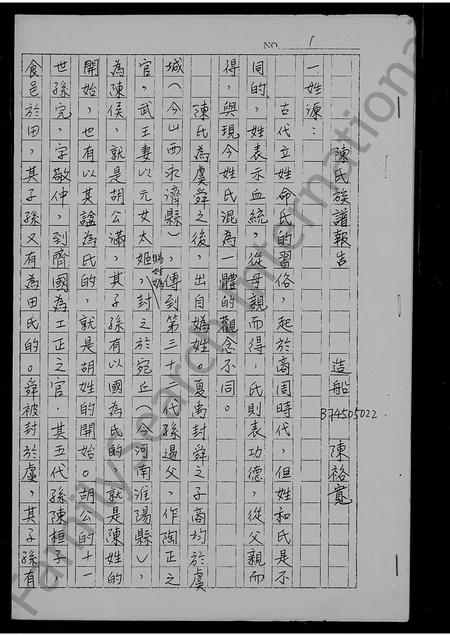 NO. 1
陳氏族譜報告
造船 B74505022 陳裕寬
一姓源：
古代立姓命氏的習俗，起於商周時代，但姓和氏是不
同的，姓表示血統，從母親而得，氏則表功德，從父親而
得，與現今姓氏混為一體的觀念不同。
陳氏為虞舜之後，出自媯姓。夏禹封舜之子商均於虞
城（今山西永濟縣），傳到第三十二代孫遏父，作陶正之
官，武王妻以元女太姬，賜姓媯，封之於宛丘（今河南淮陽縣），
為陳侯，就是胡公滿，其子孫有以國為氏的，就是陳姓的
開始，也有以其諡為氏的，就是胡姓的開始。胡公的十一
世孫完，字敬仲，到齊國為工正之官，其五代孫陳桓子
食邑於田，其子孫又有為田氏的。舜被封於虞，其子孫有
FamilySearch International